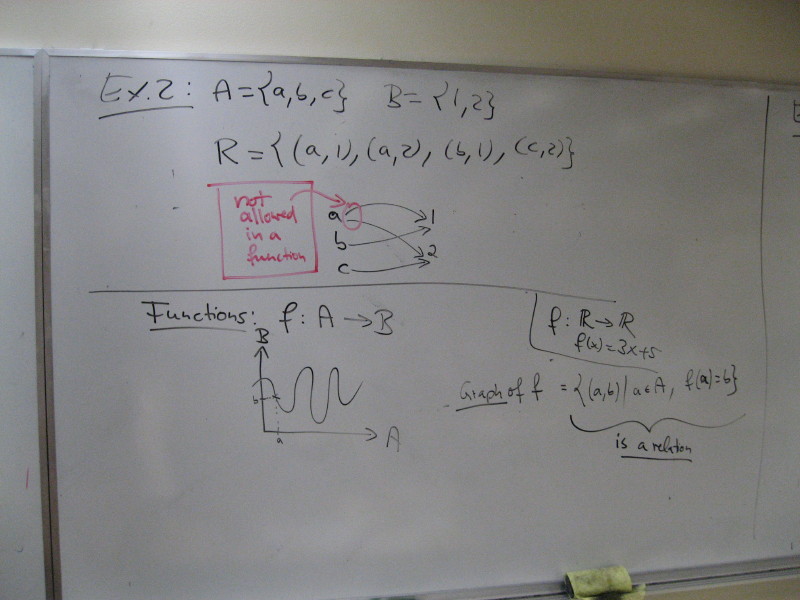 Ex.2: A={a,b,c} B={1,2}
R={(a,1),(a,2),(b,1),(c,2)}
not
allowed
in a
function
a
b
c
1
2
Functions: f: A→B
B
b
a
A
f: ℝ→ℝ
f(x)=3x+5
Graph of f = {(a,b)| a∈A, f(a)=b}
is a relation